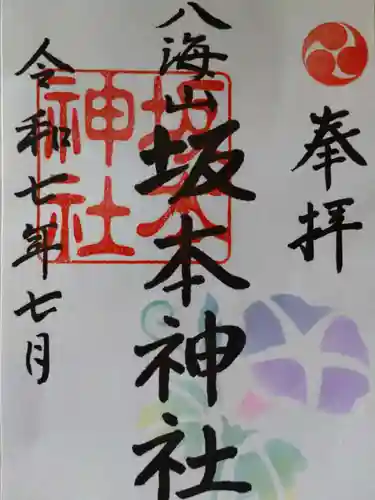 奉拝
八海山
坂本神社
坂本神社
令和七年七月